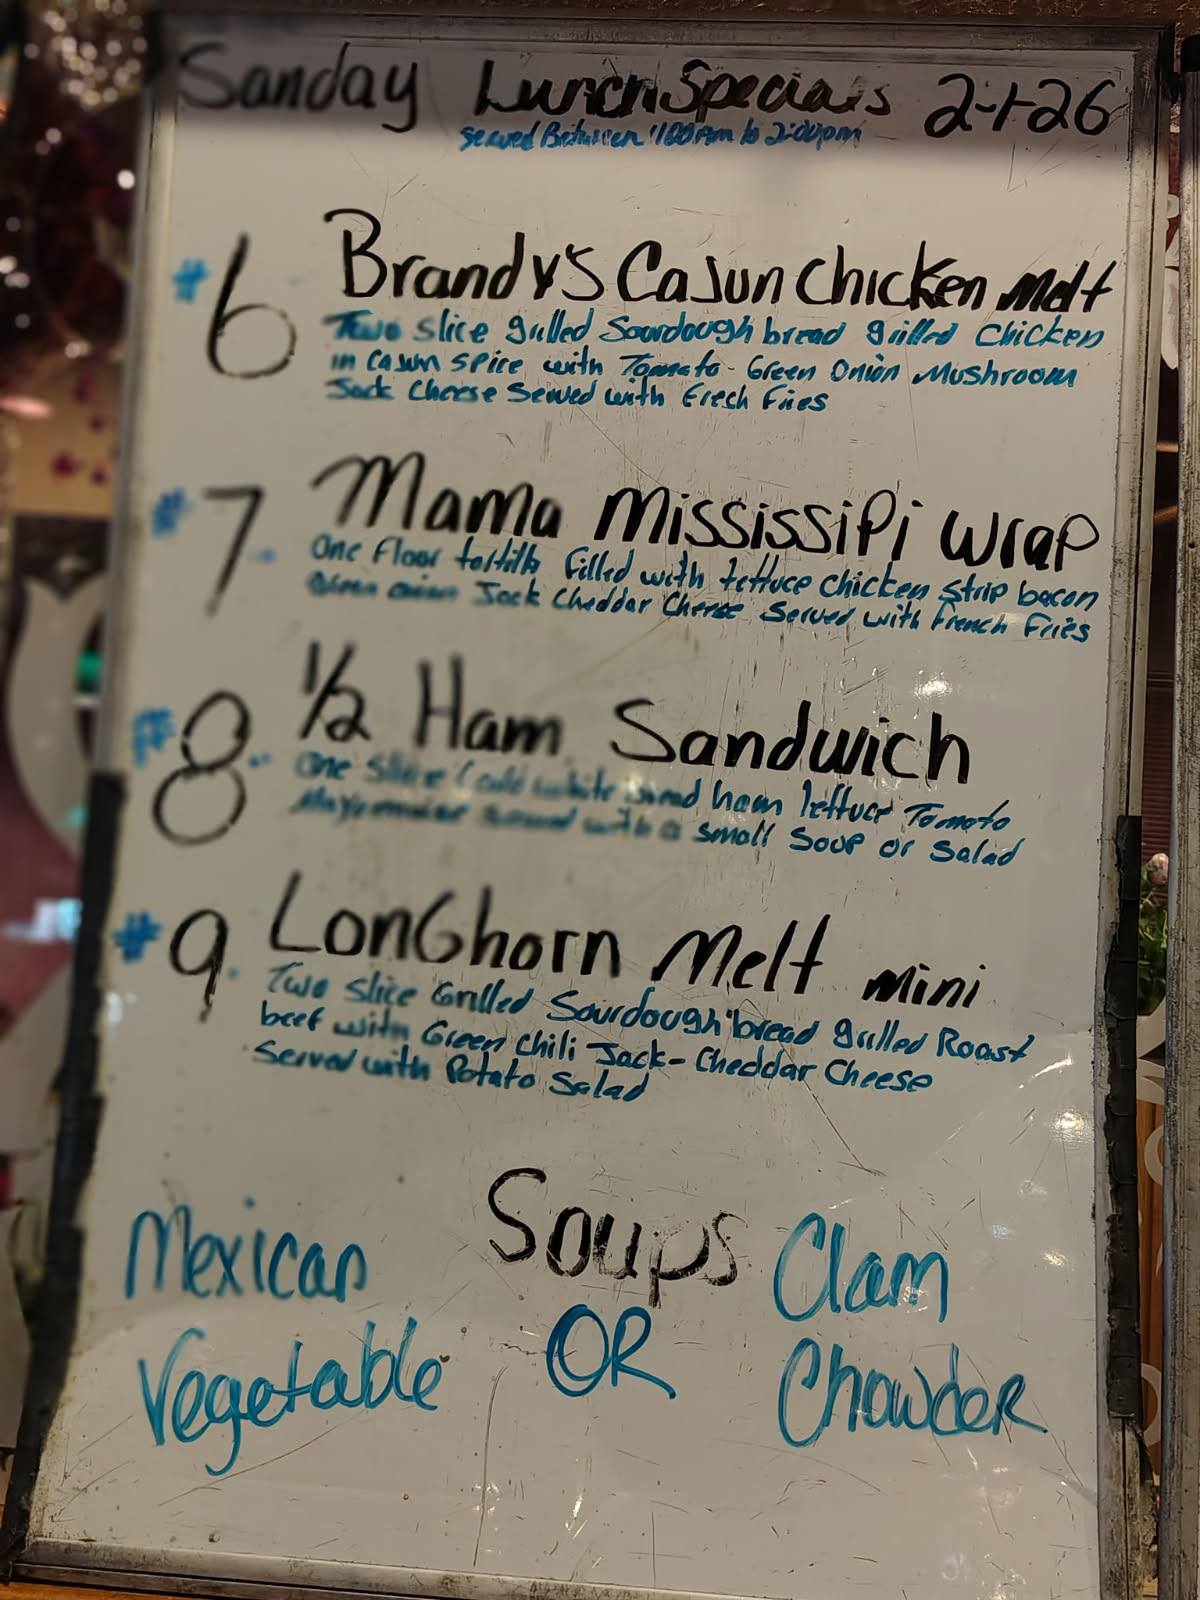 Sanday Lunch Specials 2-1-26
Served Between 1100Am to 2:00pm
#6 Brandy's Cajun Chicken Melt
Two slice grilled Sourdough bread grilled Chicken
in Cajun spice with Tomato - Green Onion Mushroom
Jack Cheese Served with Frech Fries
#7 Mama Mississipi Wrap
One Floor tortilla filled with lettuce chicken strip bacon
Green onion Jack Cheddar Cheese Served with French Fries
#8 1/2 Ham Sandwich
One Slice Cold white bread ham lettuce Tomato
served with a small Soup or Salad
#9 Longhorn Melt mini
Two slice Grilled Sourdough bread grilled Roast
beef with Green Chili Jack-Cheddar Cheese
Served with Potato Salad
Soups
Mexican Vegetable
OR
Clam Chowder